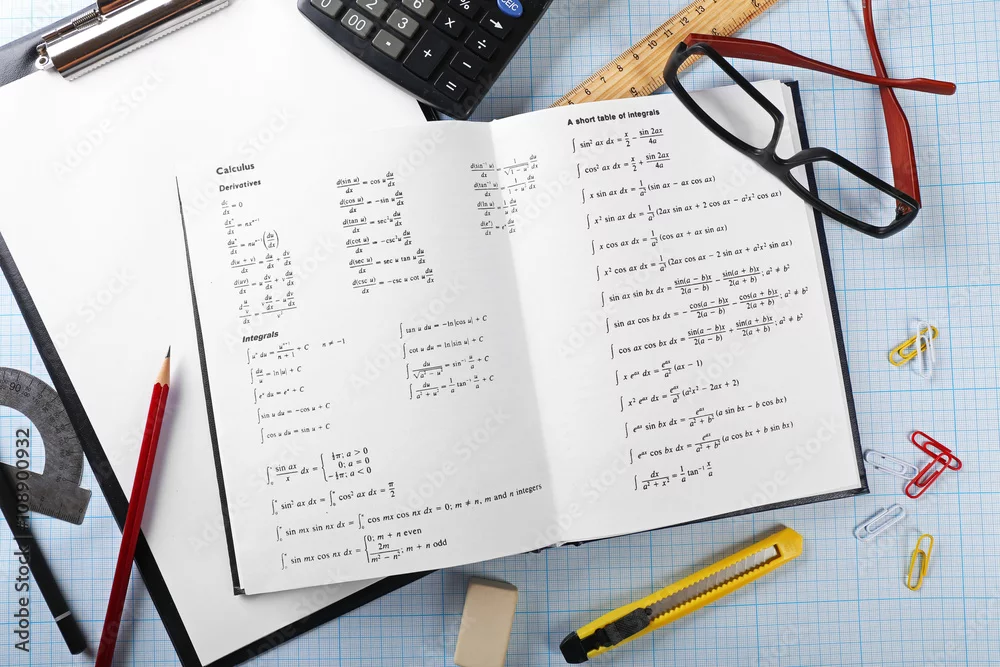 Calculus
Derivatives
dc/dx = 0
dxⁿ/dx = nxⁿ⁻¹
duⁿ/dx = nuⁿ⁻¹(du/dx)
d(u + v)/dx = du/dx + dv/dx
d(uv)/dx = u dv/dx + v du/dx
d(sin u)/dx = cos u du/dx
d(cos u)/dx = −sin u du/dx
d(tan u)/dx = sec²u du/dx
d(cot u)/dx = −csc²u du/dx
d(sec u)/dx = sec u tan u du/dx
d(csc u)/dx = −csc u cot u du/dx
d(sin⁻¹ u)/dx = 1/√(1 − u²) du/dx
d(ln u)/dx = 1/u du/dx
d(eᵘ)/dx = eᵘ du/dx
Integrals
∫uⁿ du = uⁿ⁺¹/(n + 1) + C n ≠ −1
∫du/u = ln|u| + C
∫eᵘ du = eᵘ + C
∫sin u du = −cos u + C
∫cos u du = sin u + C
∫tan u du = −ln|cos u| + C
∫cot u du = ln|sin u| + C
∫du/√(a² − u²) = sin⁻¹ u/a + C
∫du/(a² + u²) = 1/a tan⁻¹ u/a + C
sin ax/x dx = { ½π; a > 0
0; a = 0
−½π; a < 0
sin² ax dx = cos² ax dx = π/2
sin mx sin nx dx = cos mx cos nx dx = 0; m ≠ n, m and n integers
sin mx cos nx dx = { 0; m + n even
2m/(m² − n²); m + n odd
A short table of integrals
∫ sin² ax dx = x/2 − sin 2ax/4a
∫ cos² ax dx = x/2 + sin 2ax/4a
∫ x sin ax dx = 1/a² (sin ax − ax cos ax)
∫ x² sin ax dx = 1/a³ (2ax sin ax + 2 cos ax − a²x² cos ax)
∫ x cos ax dx = 1/a² (cos ax + ax sin ax)
∫ x² cos ax dx = 1/a³ (2ax cos ax − 2 sin ax + a²x² sin ax)
∫ sin ax sin bx dx = sin(a − b)x/2(a − b) − sin(a + b)x/2(a + b); a² ≠ b²
∫ sin ax cos bx dx = − cos(a − b)x/2(a − b) − cos(a + b)x/2(a + b); a² ≠ b²
∫ cos ax cos bx dx = sin(a − b)x/2(a − b) + sin(a + b)x/2(a + b); a² ≠ b²
∫ x eᵃˣ dx = eᵃˣ/a² (ax − 1)
∫ x² eᵃˣ dx = eᵃˣ/a³ (a²x² − 2ax + 2)
∫ eᵃˣ sin bx dx = eᵃˣ/(a² + b²) (a sin bx − b cos bx)
∫ eᵃˣ cos bx dx = eᵃˣ/(a² + b²) (a cos bx + b sin bx)
∫ dx/(a² + x²) = 1/a tan⁻¹ x/a
Adobe Stock | #108900932